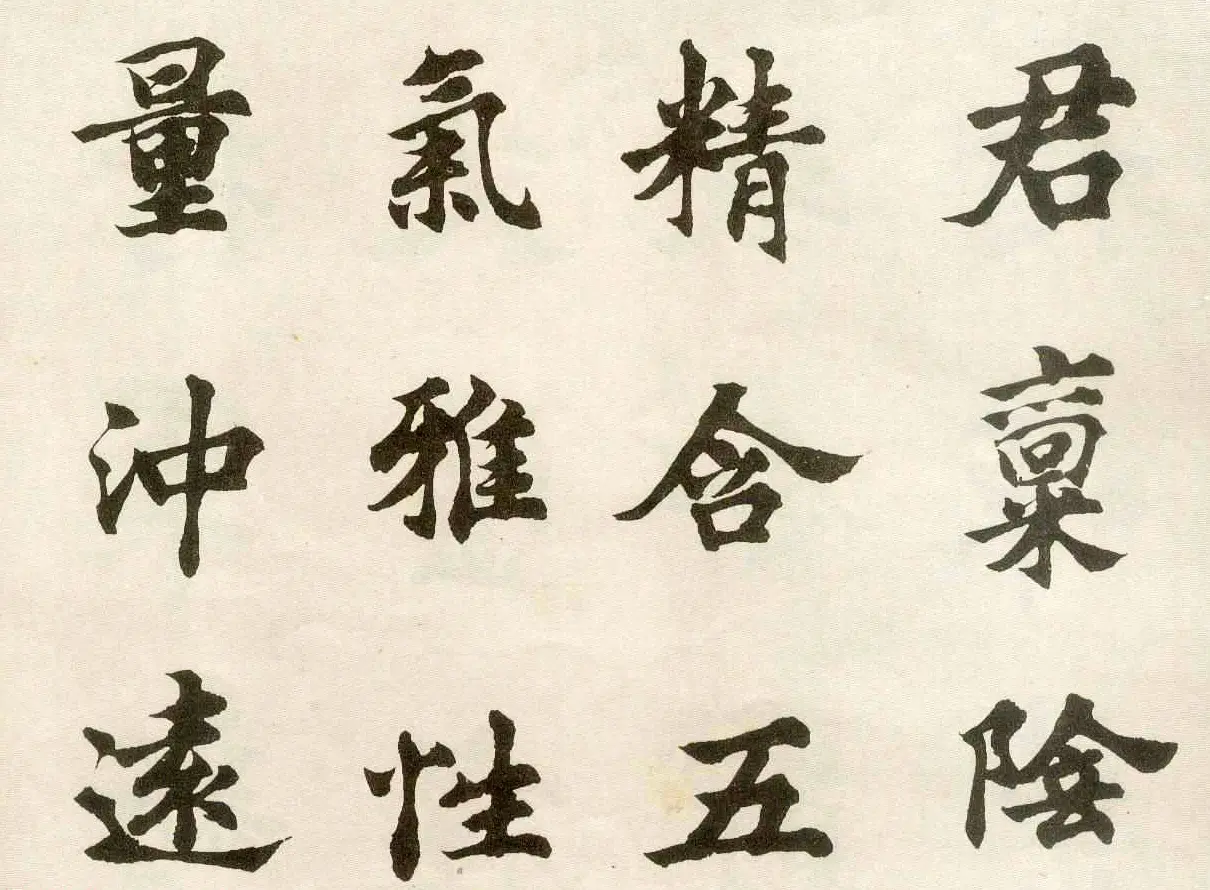 君稟陰
精含五
氣雅性
量沖遠